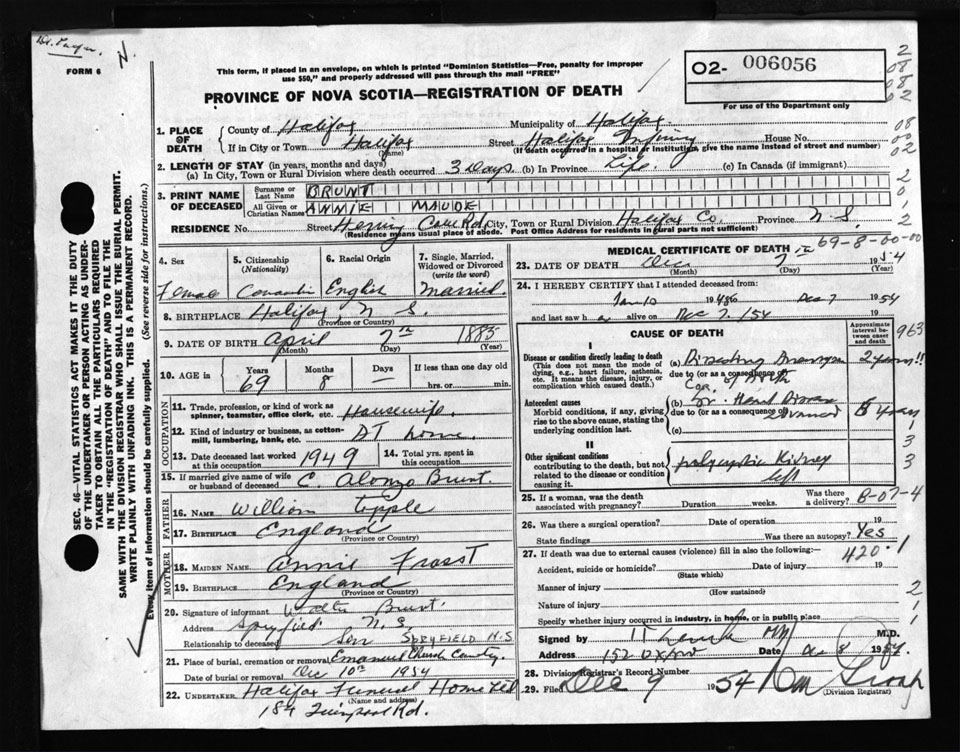 FORM 6
This form, if placed in an envelope, on which is printed "Dominion Statistics—Free, penalty for improper
use $50," and properly addressed will pass through the mail "FREE"
PROVINCE OF NOVA SCOTIA—REGISTRATION OF DEATH
O2- 006056
For use of the Department only
2
08
08
02
1. PLACE OF DEATH
County of Halifax Municipality of Halifax
If in City or Town Halifax Street Halifax Infirmary House No.
(Name) (If death occurred in a hospital or institution, give the name instead of street and number)
08
00
02
2. LENGTH OF STAY (in years, months and days)
(a) In City, Town or Rural Division where death occurred 3 Days (b) In Province Life (c) In Canada (if immigrant)
3. PRINT NAME OF DECEASED
Surname or Last Name BRUNT
All Given or Christian Names ANNIE MAUDE
RESIDENCE No. Street Herring Cove Rd. City, Town or Rural Division Halifax Co. Province N.S.
(Residence means usual place of abode. Post Office Address for residents in rural parts not sufficient)
2
0
1
2
SEC. 46—VITAL STATISTICS ACT MAKES IT THE DUTY
OF THE UNDERTAKER OR PERSON ACTING AS UNDER-
TAKER TO OBTAIN ALL THE PARTICULARS REQUIRED
IN THE "REGISTRATION OF DEATH" AND TO FILE THE
SAME WITH THE DIVISION REGISTRAR WHO SHALL ISSUE THE BURIAL PERMIT.
WRITE PLAINLY WITH UNFADING INK. THIS IS A PERMANENT RECORD.
Every item of information should be carefully supplied. (See reverse side for instructions.)
4. Sex Female
5. Citizenship (Nationality) Canadian
6. Racial Origin English
7. Single, Married, Widowed or Divorced (write the word) Married
8. BIRTHPLACE Halifax, N.S.
(Province or Country)
9. DATE OF BIRTH April 7th 1885
(Month) (Day) (Year)
10. AGE in Years 69 Months 8 Days — If less than one day old
hrs. or min.
OCCUPATION
11. Trade, profession, or kind of work as
spinner, teamster, office clerk, etc. Housewife
12. Kind of industry or business, as cotton-
mill, lumbering, bank, etc. At home
13. Date deceased last worked at this occupation 1949 14. Total yrs. spent in this occupation
15. If married give name of wife
or husband of deceased C. Alonzo Brunt
FATHER
16. NAME William Topple
17. BIRTHPLACE England
(Province or Country)
MOTHER
18. MAIDEN NAME Annie Frost
19. BIRTHPLACE England
(Province or Country)
20. Signature of informant Walter Brunt
Address Spryfield N.S.
Relationship to deceased Son SPRYFIELD N.S
21. Place of burial, cremation or removal Emanuel Church Cemetery
Date of burial or removal Dec 10th 1954
22. UNDERTAKER Halifax Funeral Home Ltd
(Name and address)
Quinpool Rd.
MEDICAL CERTIFICATE OF DEATH 69-8-00-00
23. DATE OF DEATH Dec 7 1954
(Month) (Day) (Year)
24. I HEREBY CERTIFY that I attended deceased from:
Dec 7 1954
and last saw h alive on Dec 7/54
CAUSE OF DEATH
Approximate interval between cause and death
963
I
Disease or condition directly leading to death
(This does not mean the mode of
dying, e.g., heart failure, asthenia,
etc. It means the disease, injury, or
complication which caused death.)
(a) Dissecting Aneurysm 2 !!
due to (or as a consequence of)
Antecedent causes
Morbid conditions, if any, giving
rise to the above cause, stating the
underlying condition last.
(b)
due to (or as a consequence of)
(c)
1
3
3
II
Other significant conditions
contributing to the death, but not
related to the disease or condition
causing it.
polycystic Kidney
left
25. If a woman, was the death
associated with pregnancy? Duration weeks. Was there a delivery? B-07-4
26. Was there a surgical operation? Date of operation 19
State findings Was there an autopsy? Yes
27. If death was due to external causes (violence) fill in also the following:—
420.1
Accident, suicide or homicide? Date of injury 19
(State which)
Manner of injury
(How sustained)
2
Nature of injury
1
Specify whether injury occurred in industry, in home, or in public place
1
Signed by M.D.
Address 152 Date Dec 8 1954
28. Division Registrar's Record Number
29. Filed Dec 9 1954
(Division Registrar)